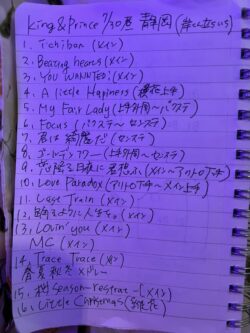 King&Prince 7/30 昼 静岡
1. ichiban (メイン)
2. Beating hearts (メイン)
3. YOU WANTED! (メイン)
4. A Little Happiness (上手)
5. My Fair Lady (上手外周〜バクステ)
6. Focus (バクステ〜センステ)
7. 君は綺麗だ (センステ)
8. ゴールデンアワー (上手外周〜センステ)
9. 恋降る月夜に君想ふ (メイン〜アリトロ下手)
10. Love Paradox (アリトロ下手〜メイン上手)
11. Last Train (メイン)
12. 踊るように人生を。(メイン)
13. Lovin' you (メイン)
MC (メイン)
14. Trace Trace (メイン)
春夏秋冬メドレー
15. 桜 season (メイン)
16. Little Christmas (